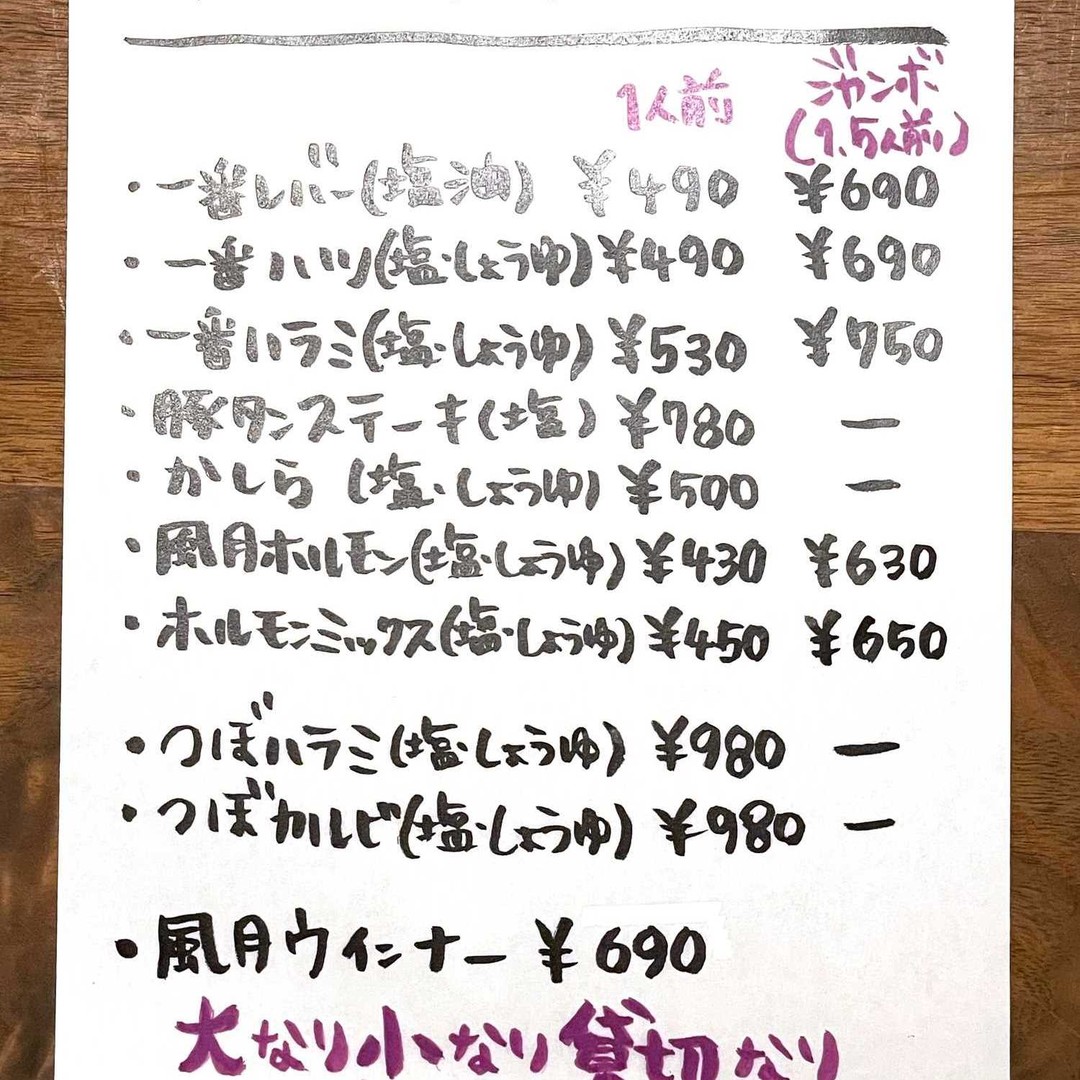 1人前 ジャンボ
(1.5人前)
・一番レバー(塩油) ¥490 ¥690
・一番ハツ(塩・しょうゆ) ¥490 ¥690
・一番ハラミ(塩・しょうゆ) ¥530 ¥750
・豚タンステーキ(塩) ¥780 ー
・かしら (塩・しょうゆ) ¥500 ー
・風月ホルモン(塩・しょうゆ) ¥430 ¥630
・ホルモンミックス(塩・しょうゆ) ¥450 ¥650
・つぼハラミ(塩・しょうゆ) ¥980 ー
・つぼカルビ(塩・しょうゆ) ¥980 ー
・風月ウインナー ¥690
大なり小なり貸切なり